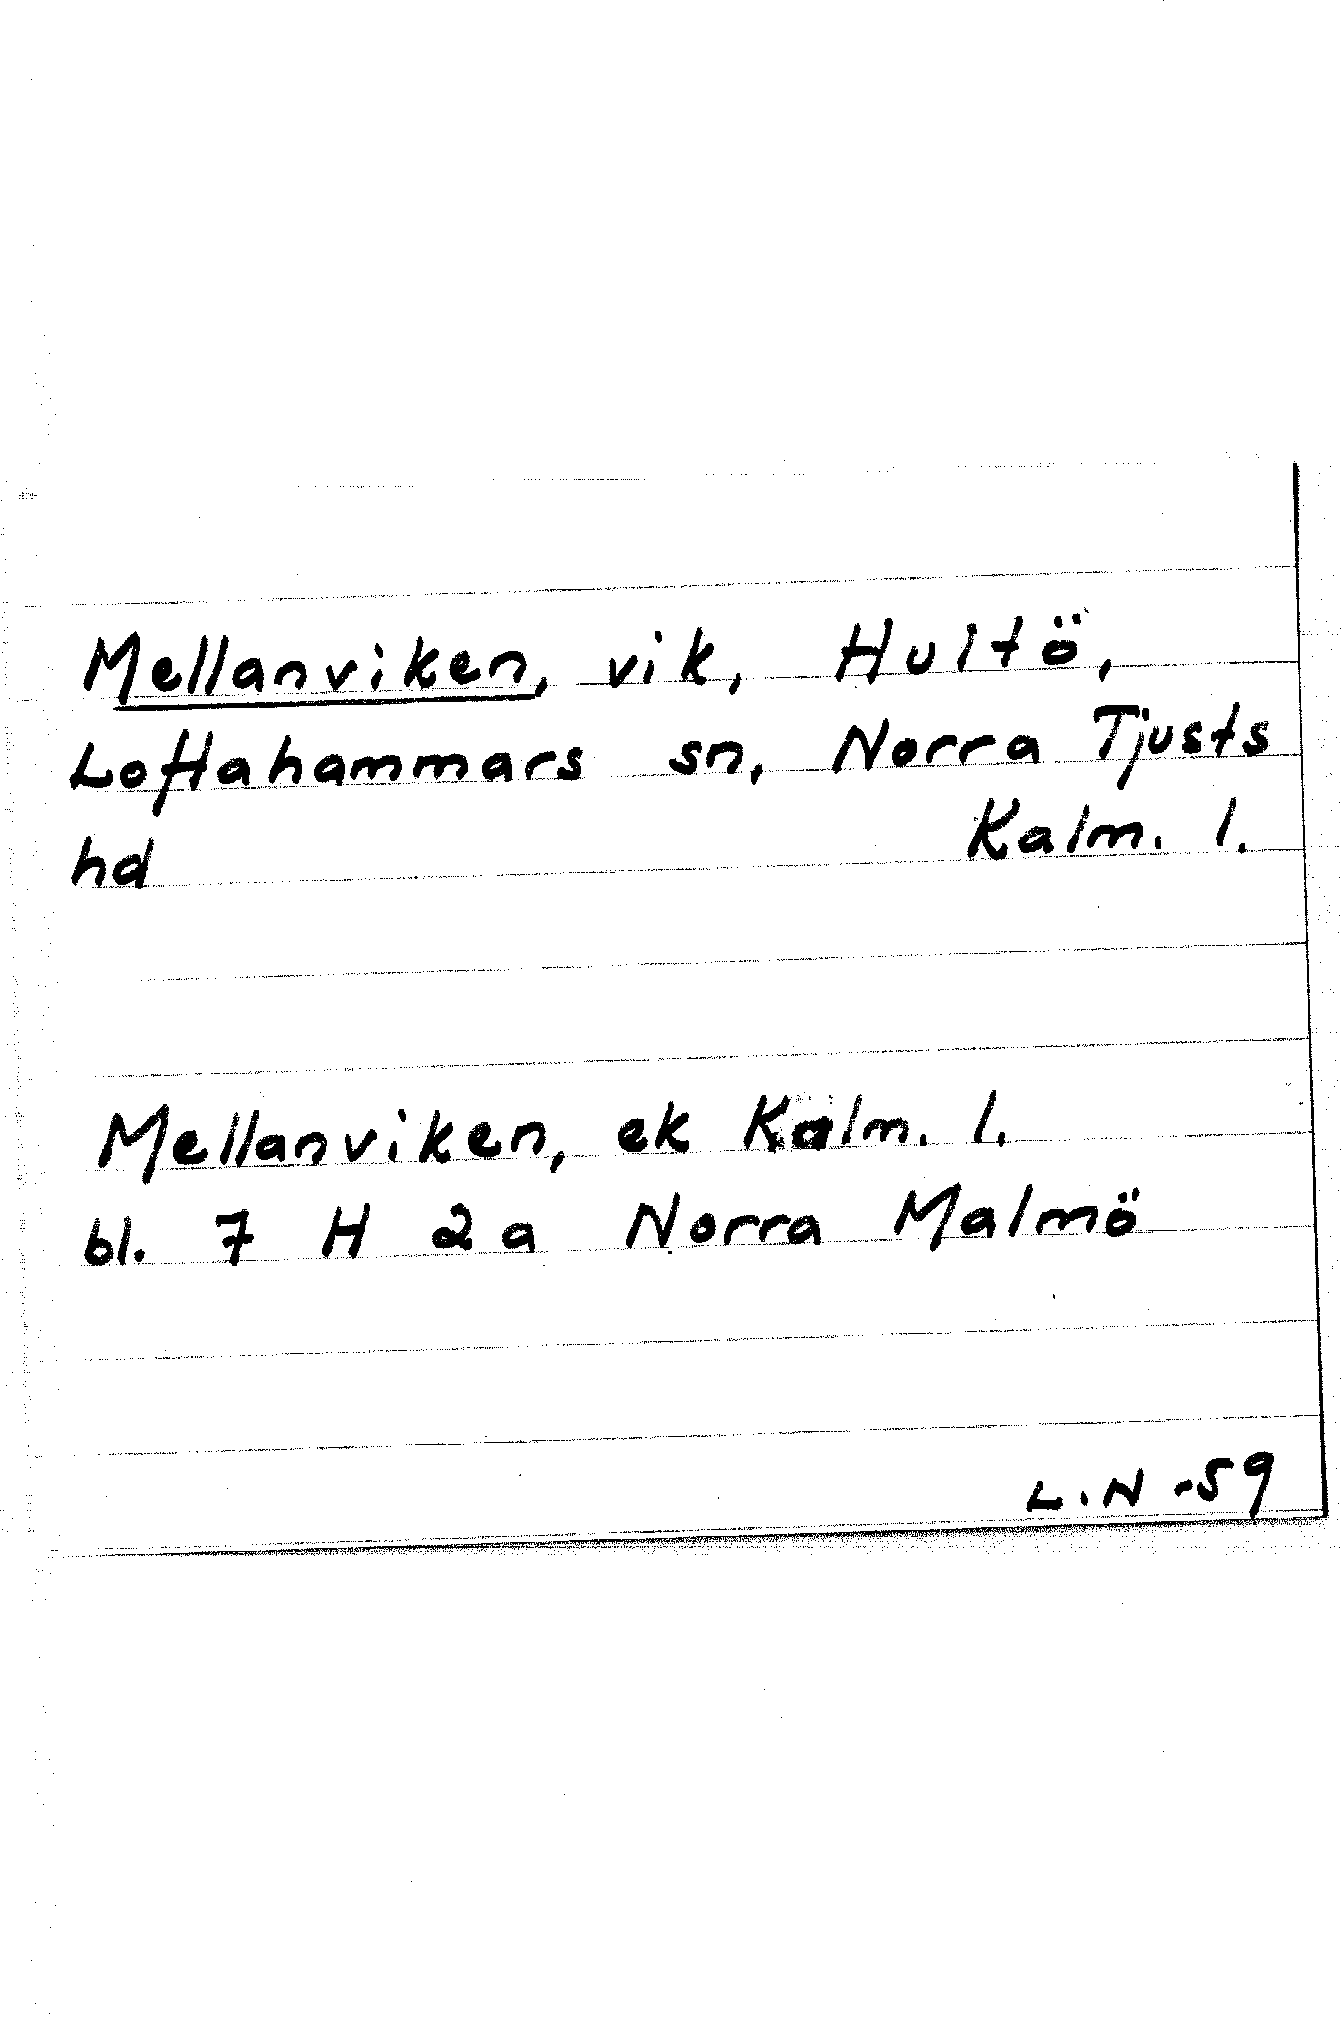 Mellanviken, vik, Hultö,
Loftahammars sn, Norra Tjusts
hd Kalm. l.
Mellanviken, ek Kalm. l.
bl. 7 H 2a Norra Malmö
L.N -59